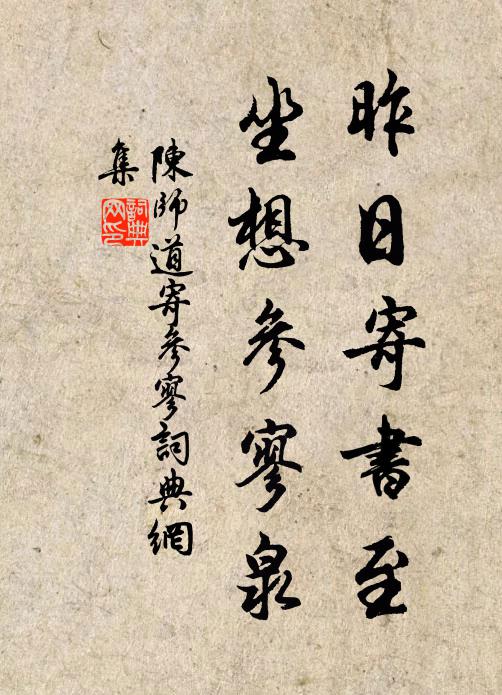 昨日寄書至
坐想參寥泉
陳師道寄參寥詞典網
集
詞典
网印